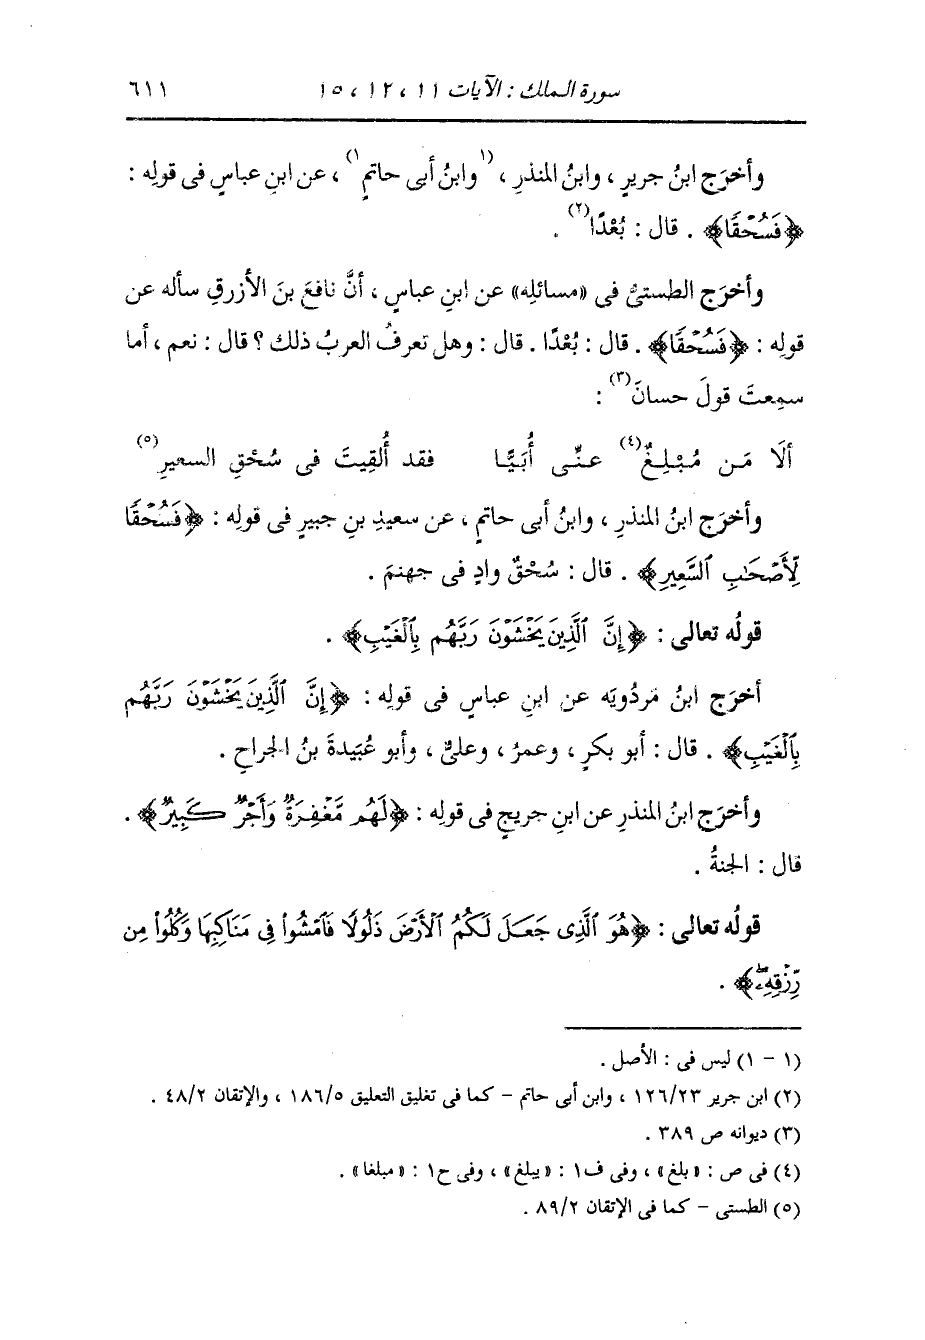 سورة الملك : الآيات ١١ ، ١٢ ، ١٥ ٦١١
وأخرَج ابنُ جريرٍ ، وابنُ المنذرِ ، (١وابنُ أبى حاتمٍ١) ، عن ابنِ عباسٍ فى قولِه :
﴿فَسُحْقًا﴾ . قال : بُعْدًا(٢) .
وأخرَج الطستىُّ فى «مسائلِه» عن ابنِ عباسٍ ، أنَّ نافعَ بنَ الأزرقِ سأله عن
قولِه : ﴿فَسُحْقًا﴾ . قال : بُعْدًا . قال : وهل تعرفُ العربُ ذلك ؟ قال : نعم ، أما
سمِعتَ قولَ حسانَ(٣) :
ألَا مَن مُبْلِغٌ(٤) عنِّى أُبَيًّا فقد أُلقِيتَ فى سُحْقِ السعيرِ(٥)
وأخرَج ابنُ المنذرِ ، وابنُ أبى حاتمٍ ، عن سعيدِ بنِ جبيرٍ فى قولِه : ﴿فَسُحْقًا
لِّأَصْحَٰبِ ٱلسَّعِيرِ﴾ . قال : سُحْقٌ وادٍ فى جهنمَ .
قولُه تعالى : ﴿إِنَّ ٱلَّذِينَ يَخْشَوْنَ رَبَّهُم بِٱلْغَيْبِ﴾ .
أخرَج ابنُ مَردُويَه عن ابنِ عباسٍ فى قولِه : ﴿إِنَّ ٱلَّذِينَ يَخْشَوْنَ رَبَّهُم
بِٱلْغَيْبِ﴾ . قال : أبو بكرٍ ، وعمرُ ، وعلىٌّ ، وأبو عُبَيدةَ بنُ الجراحِ .
وأخرَج ابنُ المنذرِ عن ابنِ جريجٍ فى قولِه : ﴿لَهُم مَّغْفِرَةٌ وَأَجْرٌ كَبِيرٌ﴾ .
قال : الجنةُ .
قولُه تعالى : ﴿هُوَ ٱلَّذِى جَعَلَ لَكُمُ ٱلْأَرْضَ ذَلُولًا فَٱمْشُوا۟ فِى مَنَاكِبِهَا وَكُلُوا۟ مِن
رِّزْقِهِۦۖ﴾ .
(١ - ١) ليس فى : الأصل .
(٢) ابن جرير ١٢٦/٢٣ ، وابن أبى حاتم - كما فى تغليق التعليق ١٨٦/٥ ، والإتقان ٤٨/٢ .
(٣) ديوانه ص ٣٨٩ .
(٤) فى ص : «بلغ» ، وفى ف١ : «يبلغ» ، وفى ح١ : «مبلغا» .
(٥) الطستى - كما فى الإتقان ٨٩/٢ .